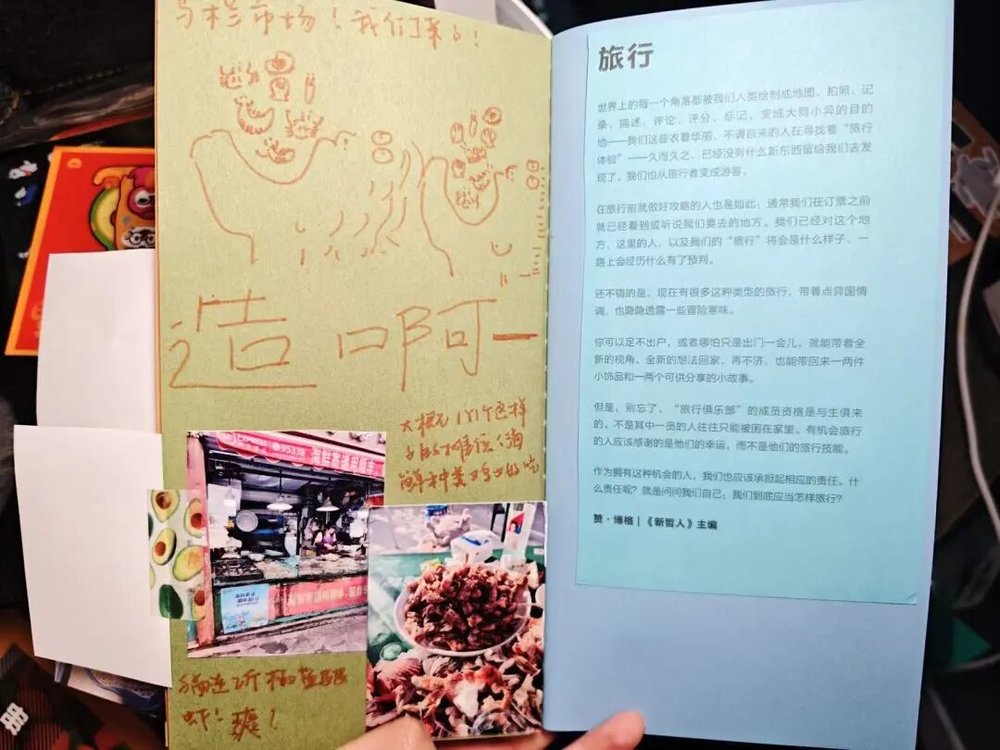 乌栏市场！我们来了！
造 口啊一
大概有1个这样
海
鲜种类又多又好吃
EXPRESS 95338 海鲜寄递用顺丰
海鲜寄递用顺丰
虾！爽！
旅行
世界上的每一个角落都被我们人类绘制成地图、拍照、记
录、描述、评论、评分、标记，变成大同小异的目的
地——我们这些衣着华丽、不请自来的人在寻找着“旅行
体验”——久而久之，已经没有什么新东西留给我们去发
现了，我们也从旅行者变成游客。
在旅行前就做好攻略的人也是如此，通常我们在订票之前
就已经看到或听说我们要去的地方。我们已经对这个地
方、这里的人，以及我们的“旅行”将会是什么样子、一
路上会经历什么有了预判。
还不错的是，现在有很多这种类型的旅行，带着点异国情
调，也隐隐透露一些冒险意味。
你可以足不出户，或者哪怕只是出门一会儿，就能带着全
新的视角、全新的想法回家，再不济，也能带回来一两件
小饰品和一两个可供分享的小故事。
但是，别忘了，“旅行俱乐部”的成员资格是与生俱来
的。不是其中一员的人往往只能被困在家里。有机会旅行
的人应该感谢的是他们的幸运，而不是他们的旅行技能。
作为拥有这种机会的人，我们也应该承担起相应的责任。什
么责任呢？就是问问我们自己；我们到底应当怎样旅行？
赞·博格 |《新哲人》主编